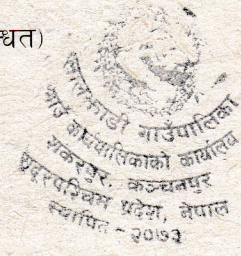 धित)
गाउँपालिका
गाउँ कार्यपालिकाको कार्यालय
कञ्चनपुर
सुदूरपश्चिम प्रदेश, नेपाल
स्थापित - २०७३